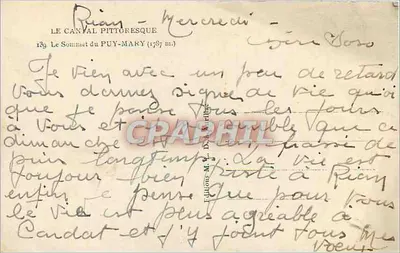 Riom - Mercredi -
LE CANTAL PITTORESQUE
189 Le Sommet du PUY-MARY (1787 m.)
Je vien avec un peu de retard
vous donner signe de vie qu'oi
que je pense tous les jours
à vous et que ce
dimanche passé de
puis longtemps. La vie est
toujour bien triste à Riom
enfin je pense que pour vous
le vie est plus agréable à
Condat et j'y joint tous mes
voeux
CPARPHIL
Editions M.